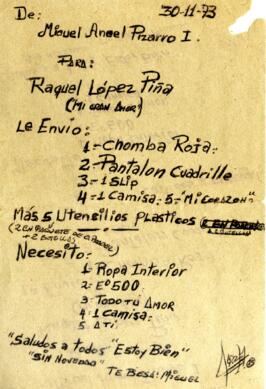 30-11-73
De:
Miguel Angel Pizarro I.
Para:
Raquel López Piña
(Mi gran amor)
Le Envio:
1 = Chomba Roja.
2 = Pantalon Cuadrille
3 = 1 Slip
4 = 1 Camisa: 5 = "Mi corazon"
Más 5 Utensilios Plasticos
Necesito:
1 Ropa Interior
2: Eº 500
3: Todo tu Amor
4: 1 Camisa:
5 A ti
"Saludos a todos "Estoy Bien"
"Sin Novedad"
Te Besa: Miguel